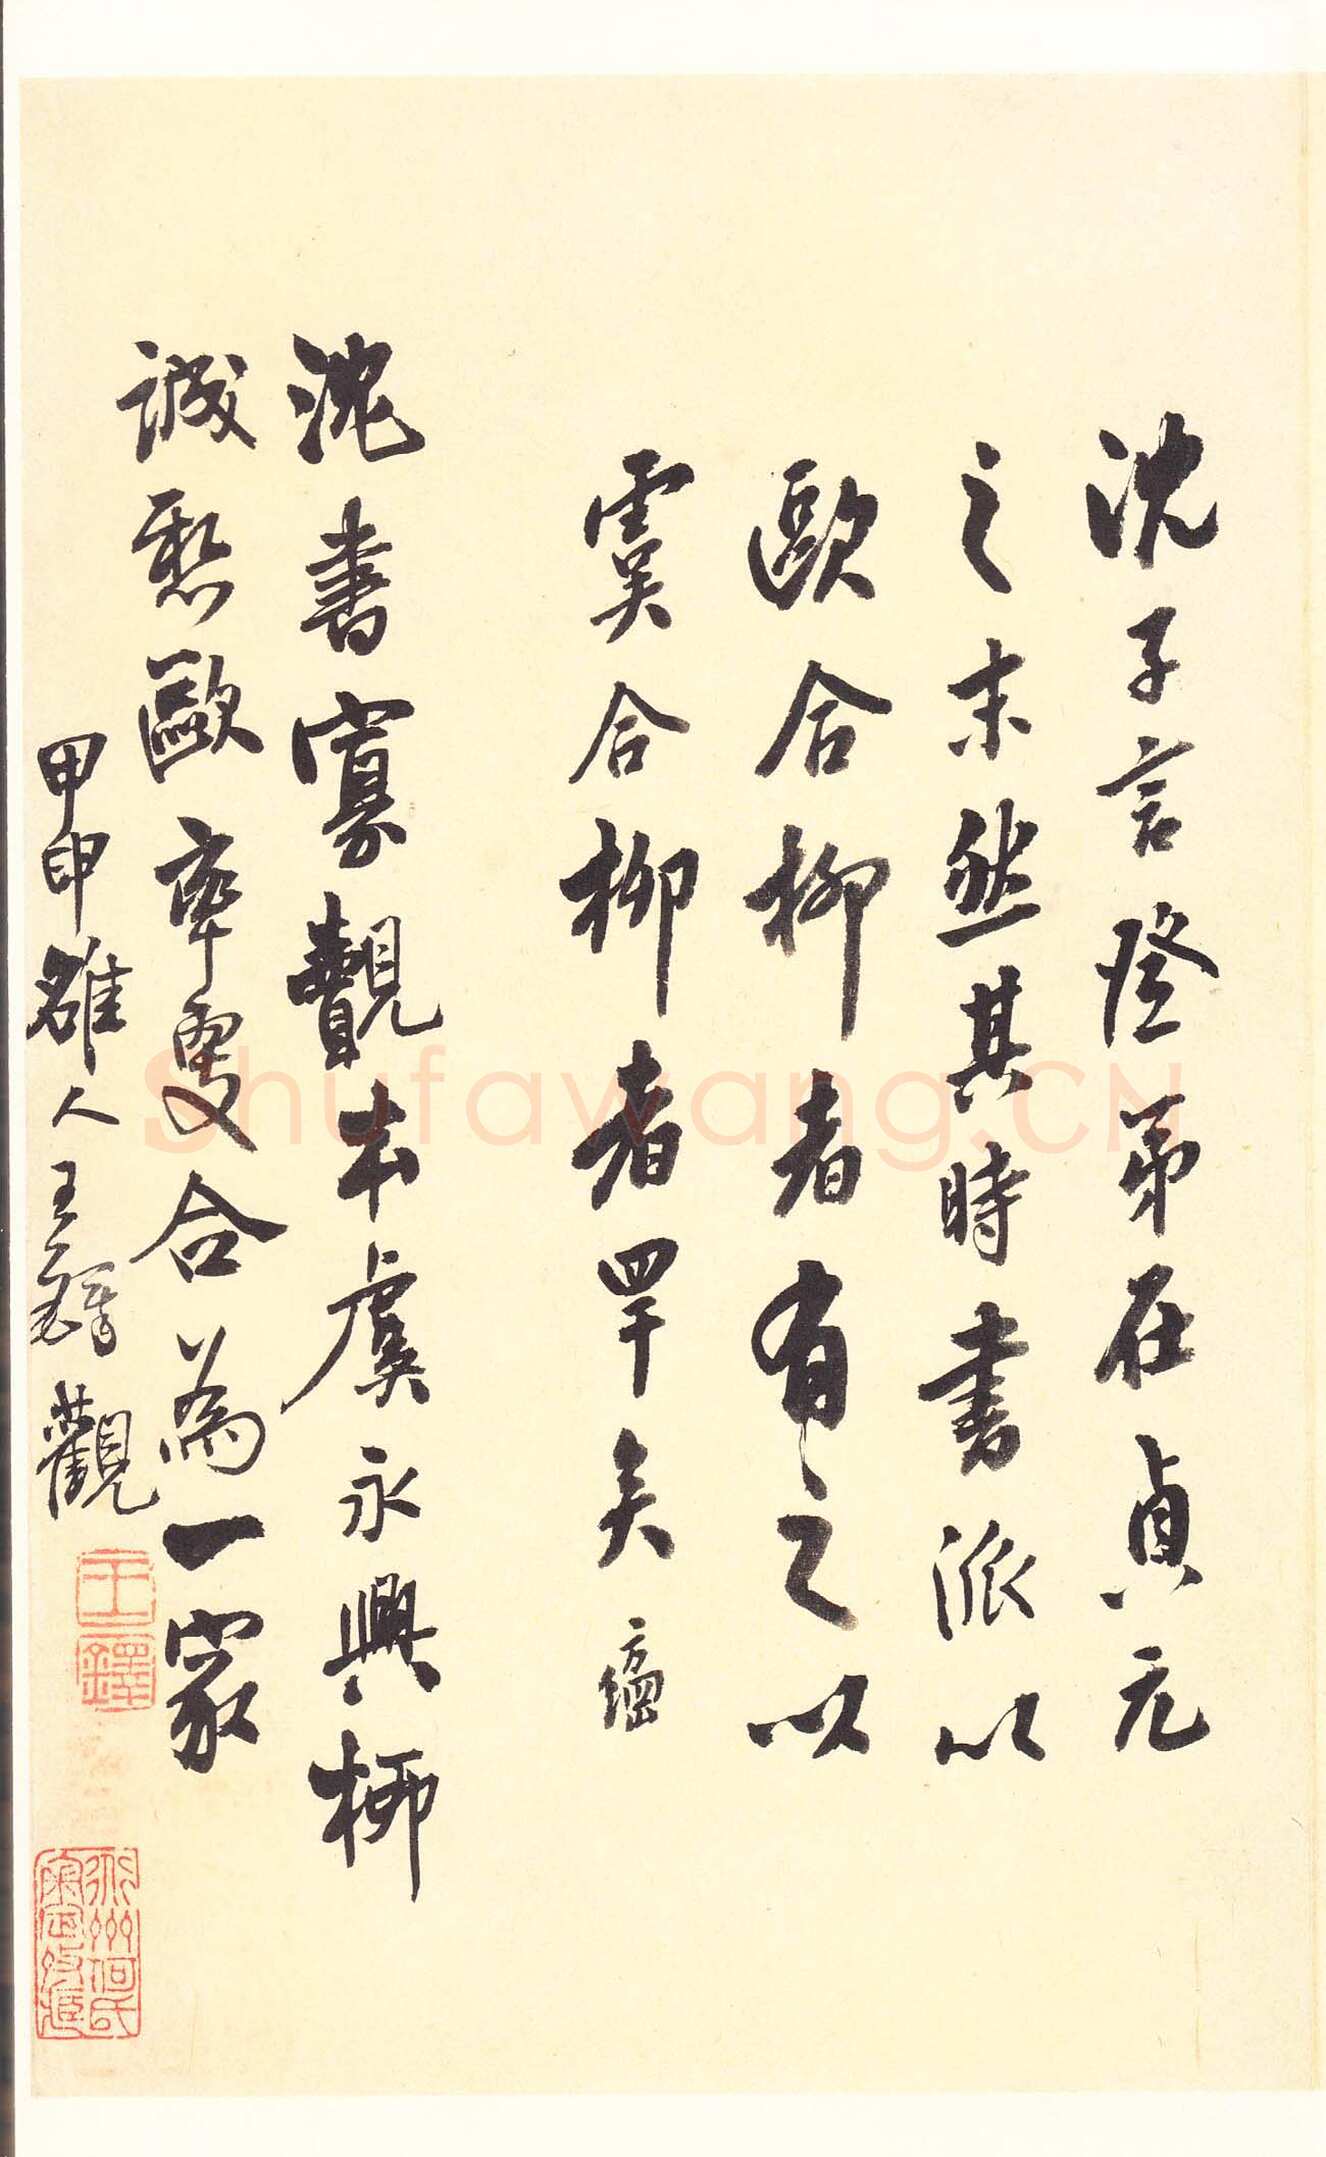 沈子言登弟在貞元
之末然其時書派以
歐合柳者有之以
虞合柳者罕矣
沈書寡覿本虞永興柳
誠懸歐率更合為一家
甲申雒人王鐸觀
王鐸
Shufawang.CN